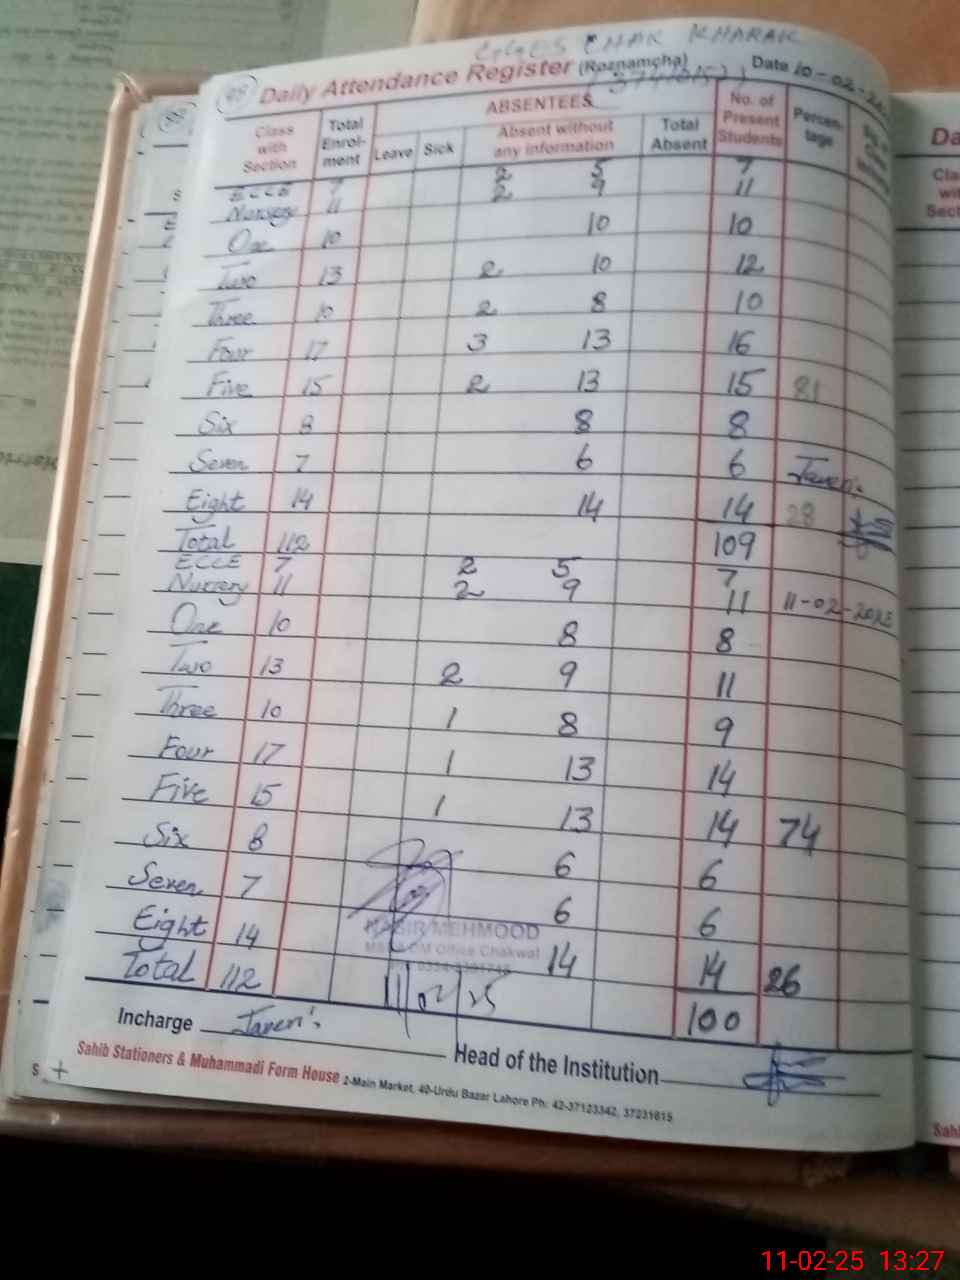 CHAK KHARAK
Daily Attendance Register (Roznamcha) Date 10-02-
Class with Section
Total Enrol-ment
ABSENTEES
Leave Sick
Absent without any information
Total Absent
No. of Present Students
Percen-tage
ECCE 7 2 5 7
Nursery 11 2 9 11
One 10 10 10
Two 13 2 10 12
Three 10 2 8 10
Four 17 3 13 16
Five 15 2 13 15 81
Six 8 8 8
Seven 7 6 6
Eight 14 14 14 28
Total 112 109
ECCE 7 2 5 7
Nursery 11 2 9 11 11-02-2025
One 10 8 8
Two 13 2 9 11
Three 10 1 8 9
Four 17 1 13 14
Five 15 1 13 14 74
Six 8 6 6
Seven 7 6 6
Eight 14 14 14 26
Total 112 100
MEHMOOD
Office Chakwal
11/02/25
Incharge
Head of the Institution
Sahib Stationers & Muhammadi Form House 2-Main Market, 40-Urdu Bazar Lahore Ph: 42-37123342, 37231615
11-02-25 13:27